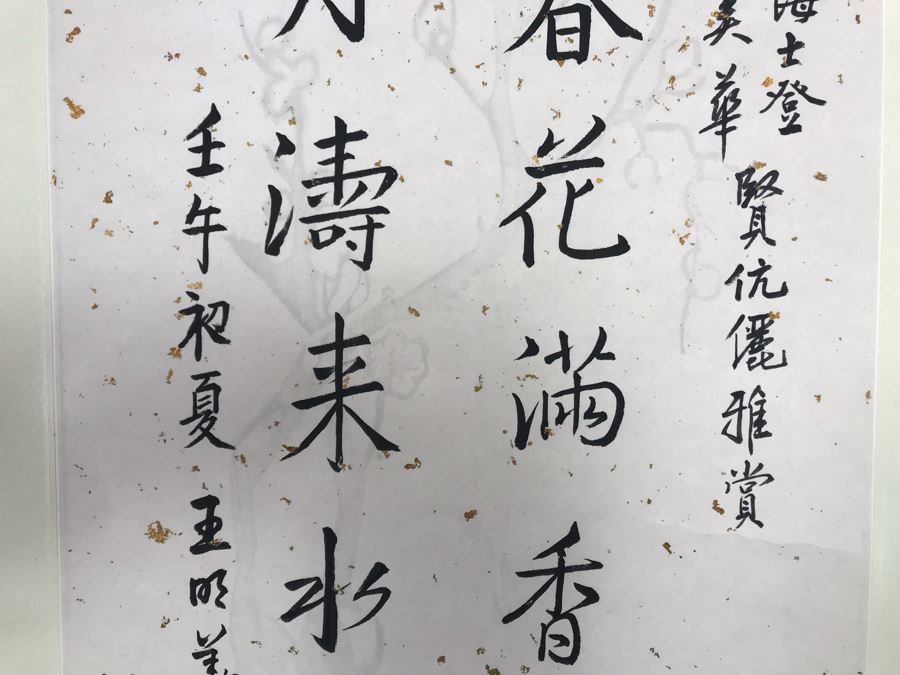 海士登
美華 賢伉儷雅賞
春花滿香
月濤来水
壬午初夏 王明義